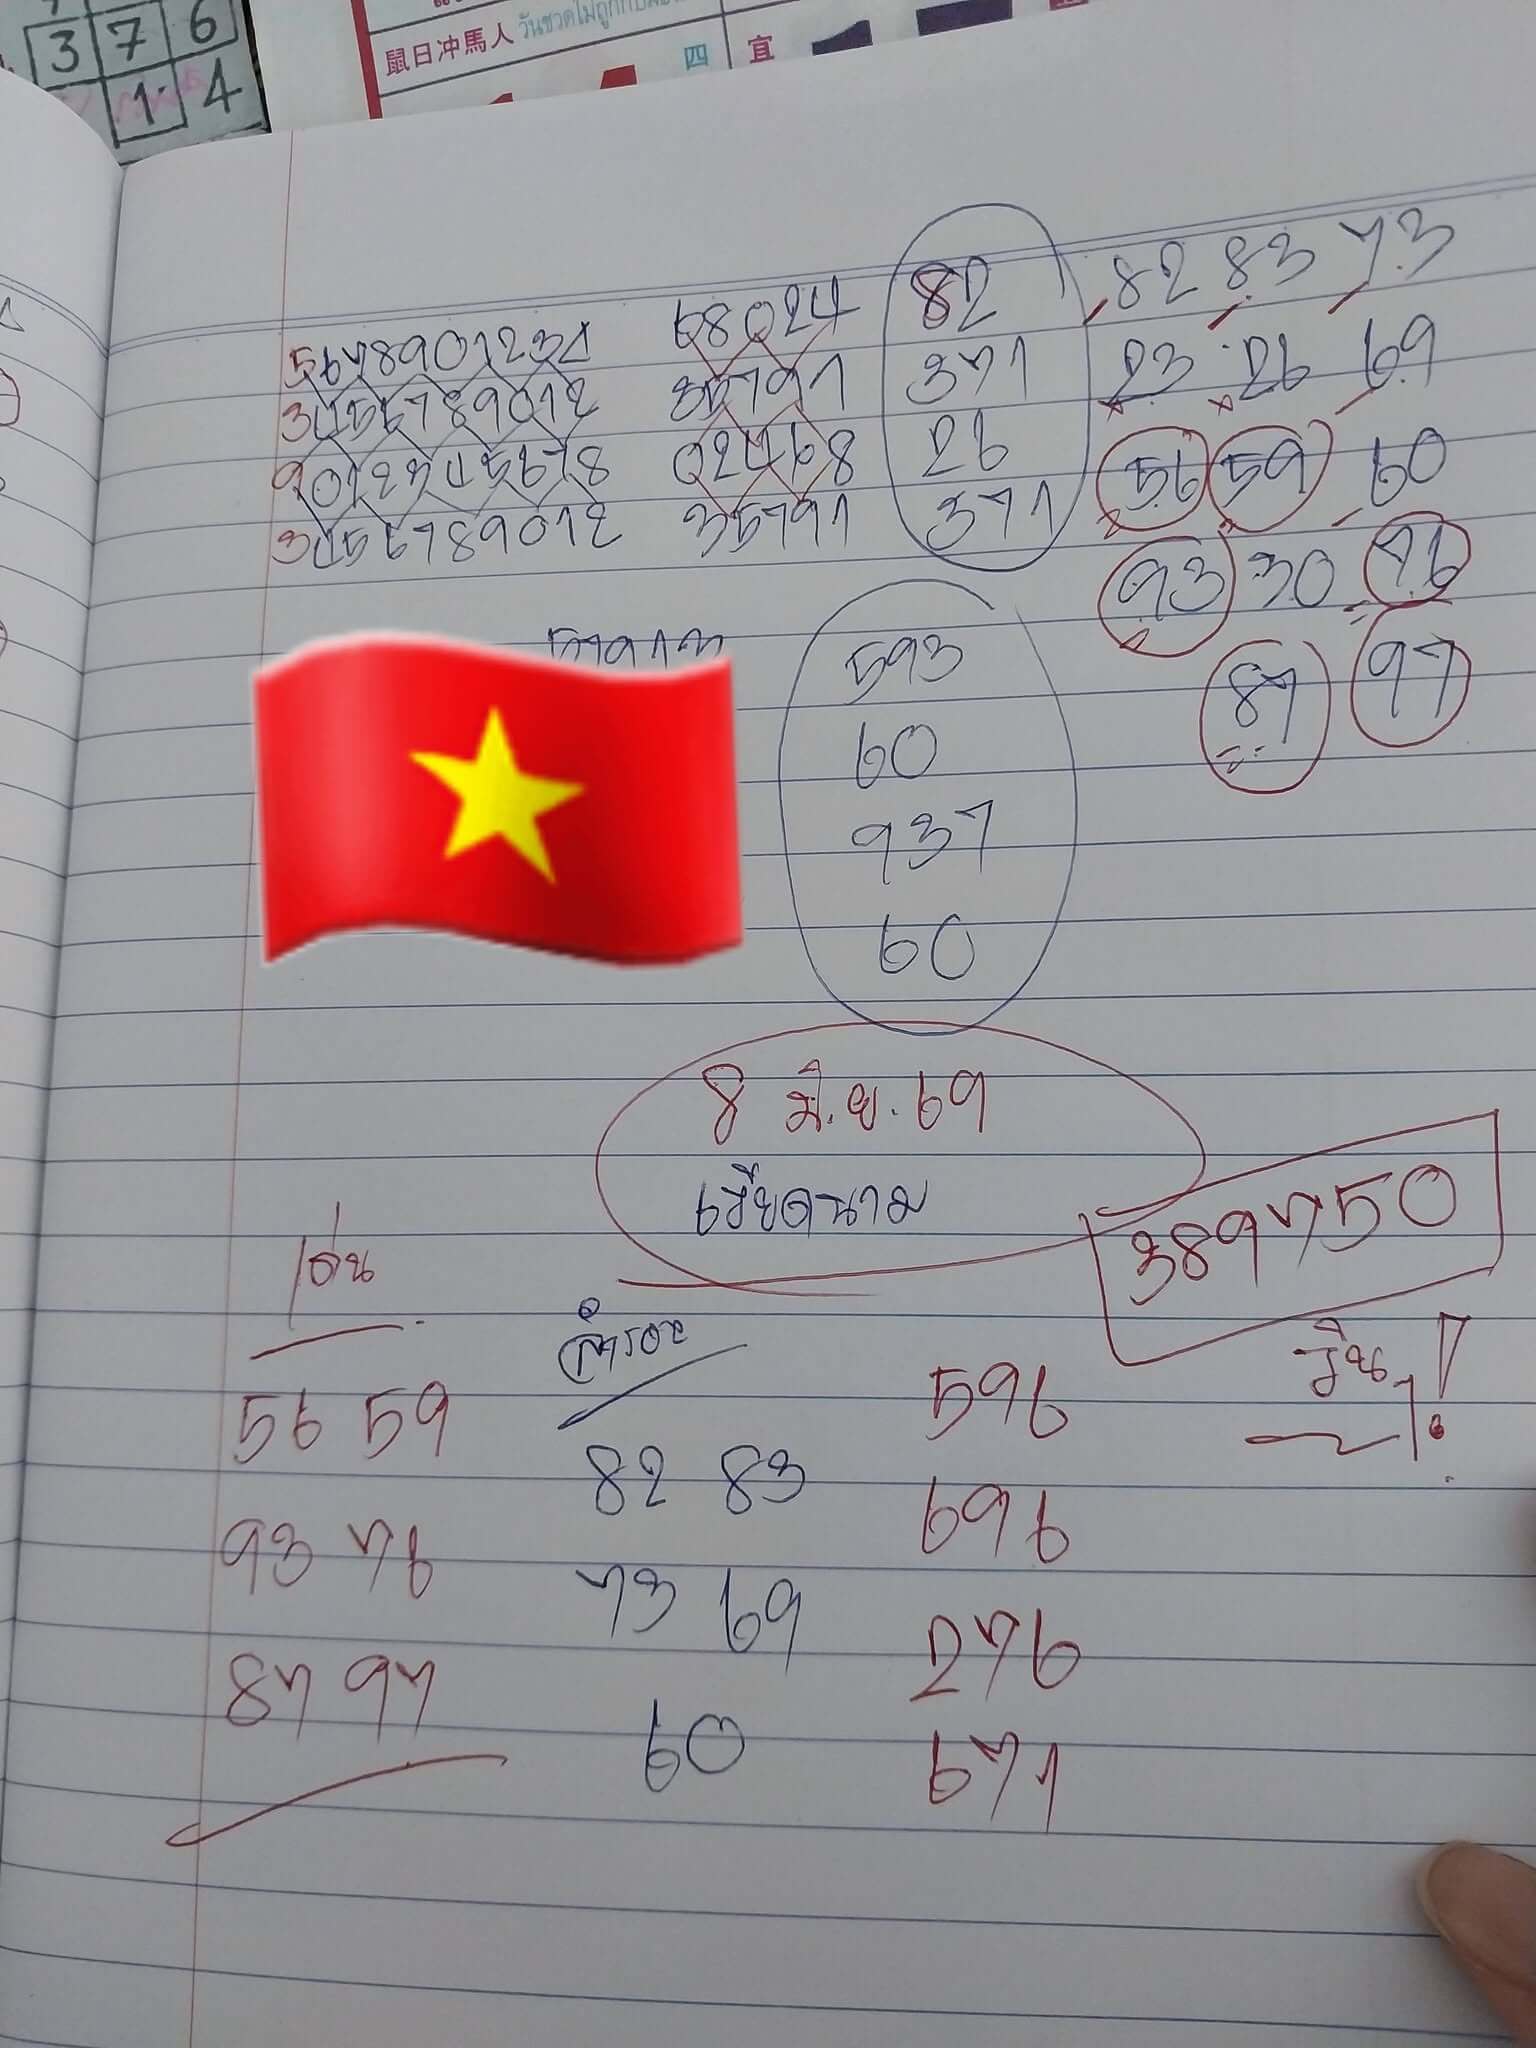 3 7 6
1 4
鼠日冲馬人 วันชวดไม่ถูกกับมะ
四 宜
5678901234 68024 82 82 83 73
3455789012 35791 371 23 26 69
9012345678 02468 26 56 59 60
3456789012 35791 371 93 30 76
87 97
57913 593
60
937
60
8 มิ.ย. 69
เวียดนาม
389750
เด่น
สำรอง
วิน !
56 59 596
82 83
93 76 696
73 69
87 97 276
60 671